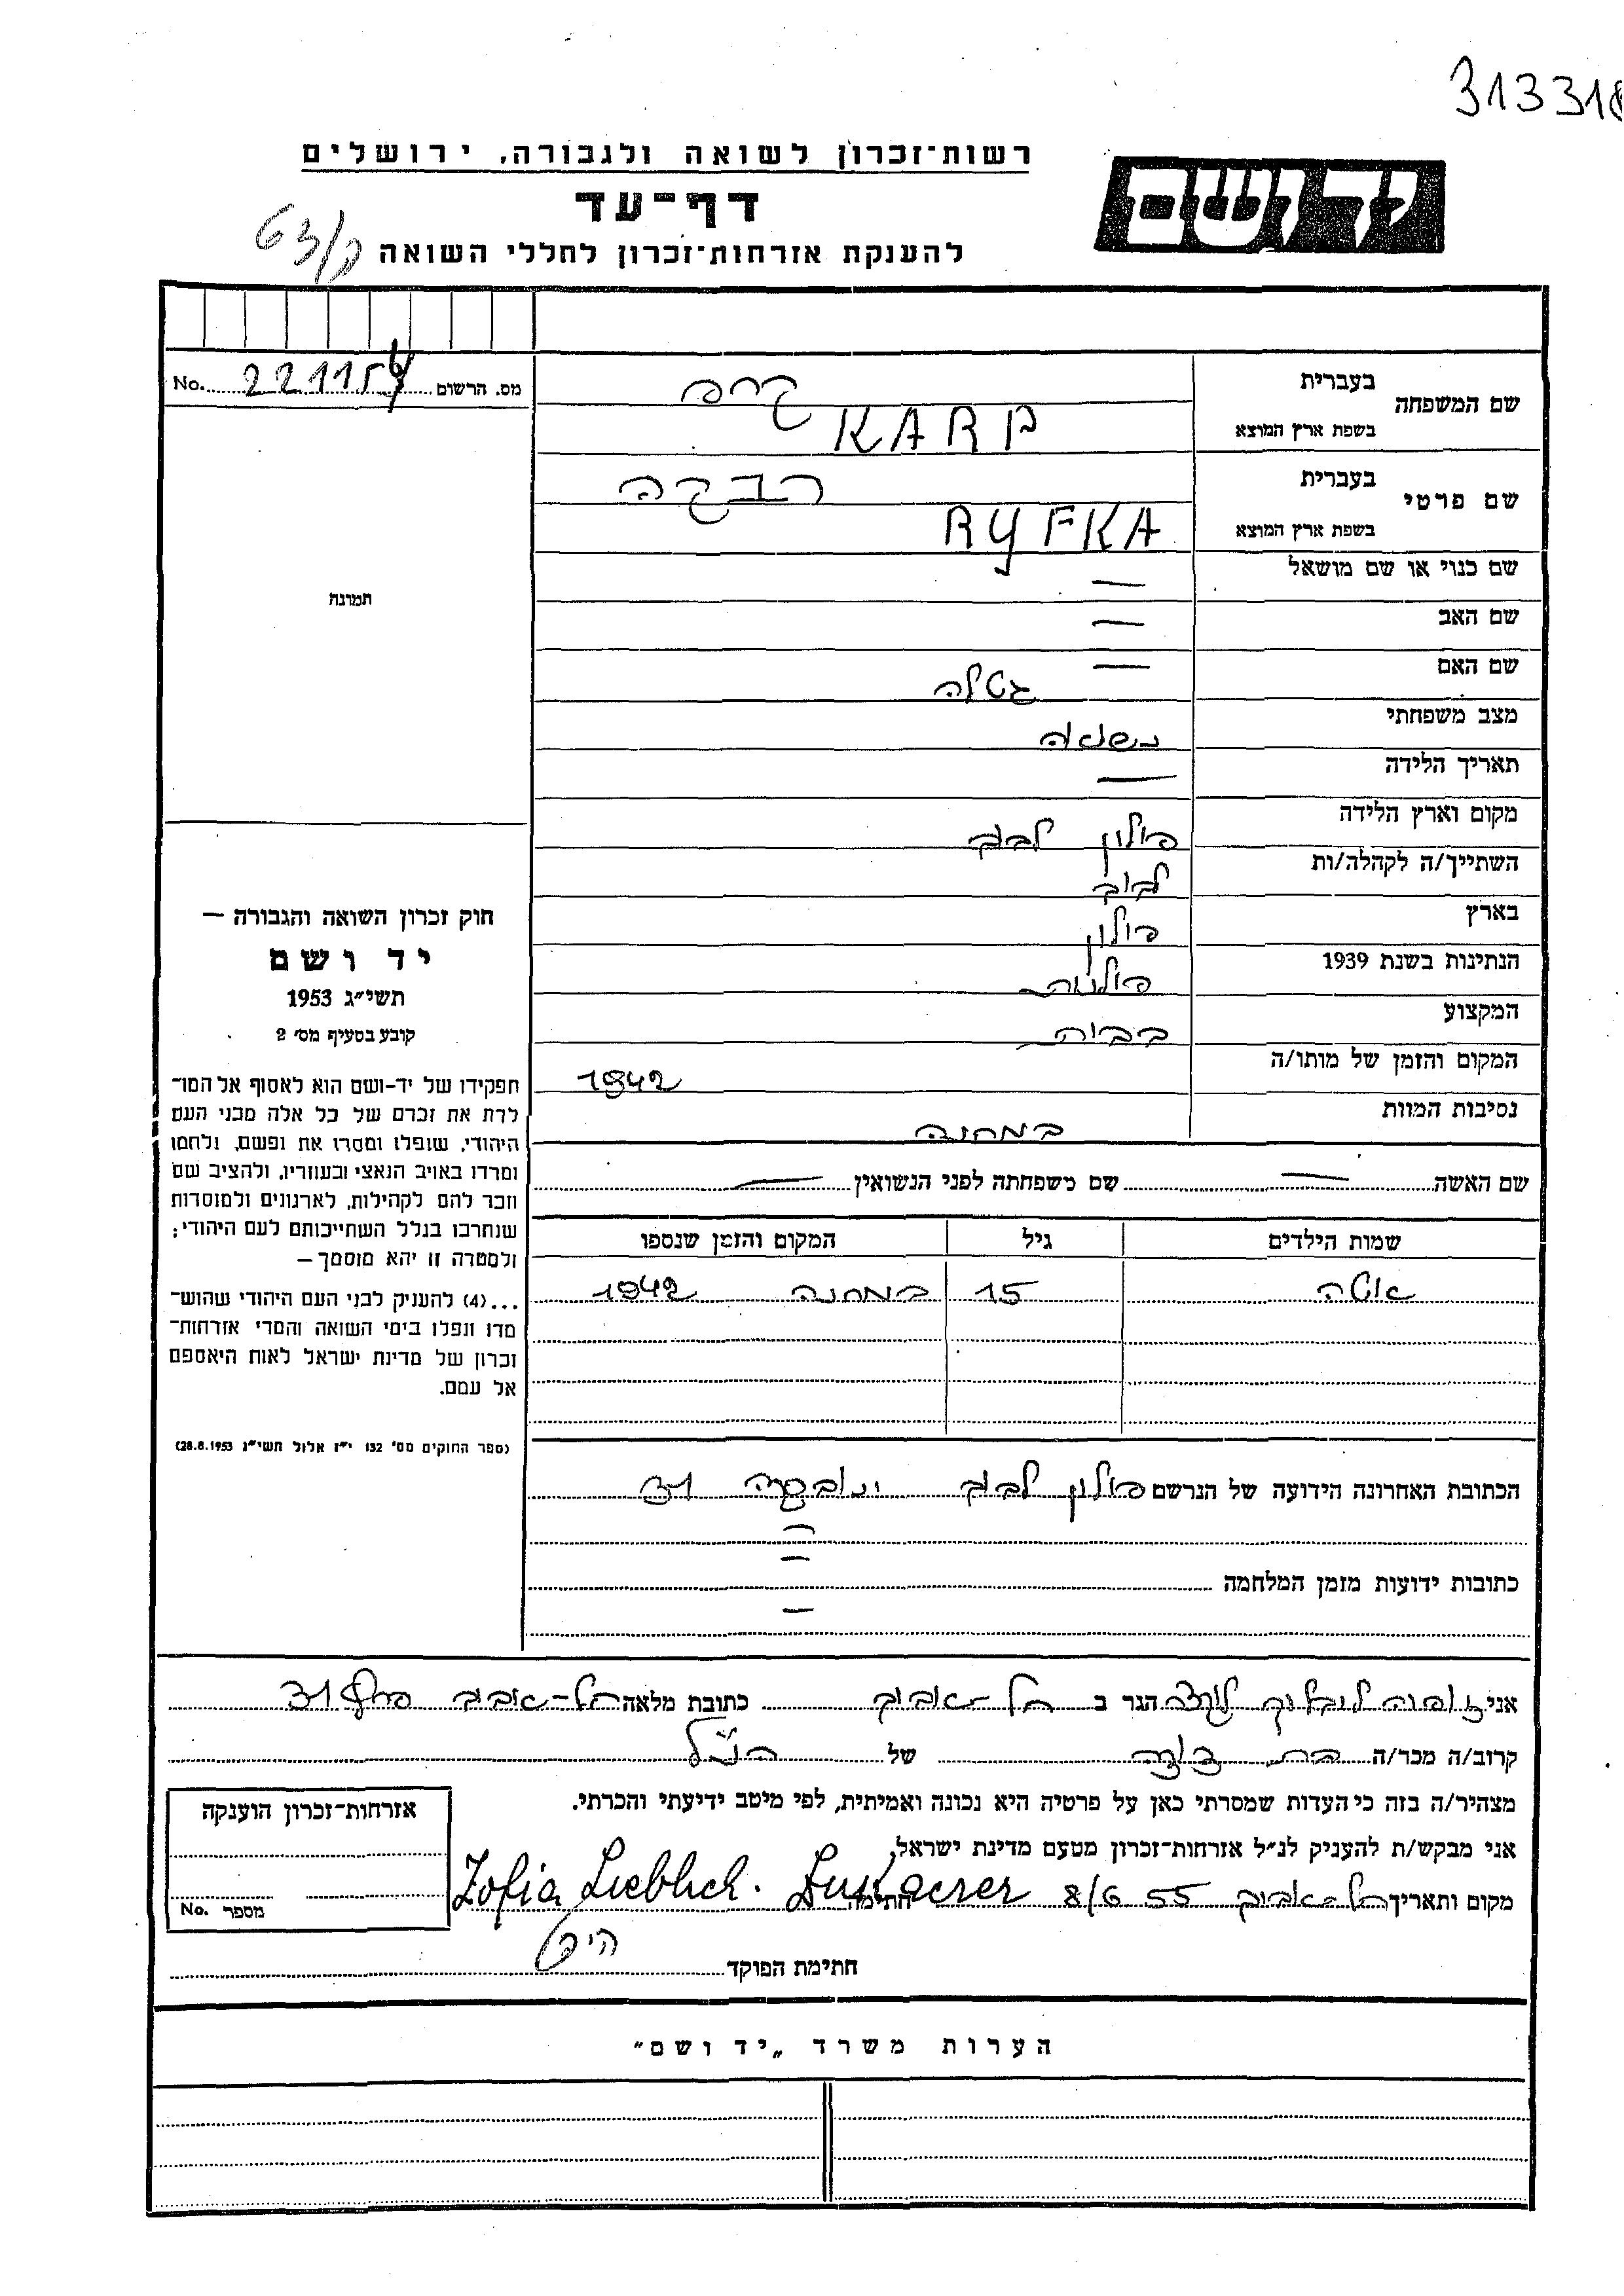 313318
רשות־זכרון לשואה ולגבורה, ירושלים
יד ושם
דף־עד
להענקת אזרחות־זכרון לחללי השואה
ק/63
מס. הרשום 221156 No.
שם המשפחה בעברית קרפ
בשפת ארץ המוצא KARP
שם פרטי בעברית רבקה
בשפת ארץ המוצא RYFKA
שם כנוי או שם מושאל —
שם האב —
שם האם — גטלה
מצב משפחתי נשואה
תאריך הלידה —
מקום וארץ הלידה פולין לבוב
השתייך/ה לקהלה/ות לבוב
בארץ פולין
הנתינות בשנת 1939 פולניה
המקצוע בביה
המקום והזמן של מותו/ה 1942
נסיבות המוות במחנה
תמונה
חוק זכרון השואה והגבורה —
יד ושם
תשי״ג 1953
קובע בסעיף מס׳ 2
תפקידו של יד-ושם הוא לאסוף אל המו־
לדת את זכרם של כל אלה מבני העם
היהודי, שנפלו ומסרו את נפשם, נלחמו
ומרדו באויב הנאצי ובעוזריו, ולהציב שם
וזכר להם לקהילות, לארגונים ולמוסדות
שנחרבו בגלל השתייכותם לעם היהודי;
ולמטרה זו יהא מוסמך —
...(4) להעניק לבני העם היהודי שהוש־
מדו ונפלו בימי השואה והמרי אזרחות־
זכרון של מדינת ישראל לאות היאספם
אל עמם.
(ספר החוקים מס׳ 132 י״ז אלול תשי״ג 28.8.1953)
שם האשה — שם משפחתה לפני הנשואין —
שמות הילדים גיל המקום והזמן שנספו
אטה 15 במחנה 1942
הכתובת האחרונה הידועה של הנרשם פולין לבוב ינובסקה 31
—
—
כתובות ידועות מזמן המלחמה
—
אני זופיה ליבליך הגר ב תל-אביב כתובת מלאה תל-אביב 31
קרוב/ה מכר/ה בת דודה של הנ״ל
מצהיר/ה בזה כי העדות שמסרתי כאן על פרטיה היא נכונה ואמיתית, לפי מיטב ידיעתי והכרתי.
אני מבקש/ת להעניק לנ״ל אזרחות־זכרון מטעם מדינת ישראל.
מקום ותאריך תל-אביב 8/6 55 חתימה Zofia Lieblich.
חתימת הפוקד
אזרחות־זכרון הוענקה
מספר No.
הערות משרד „יד ושם״